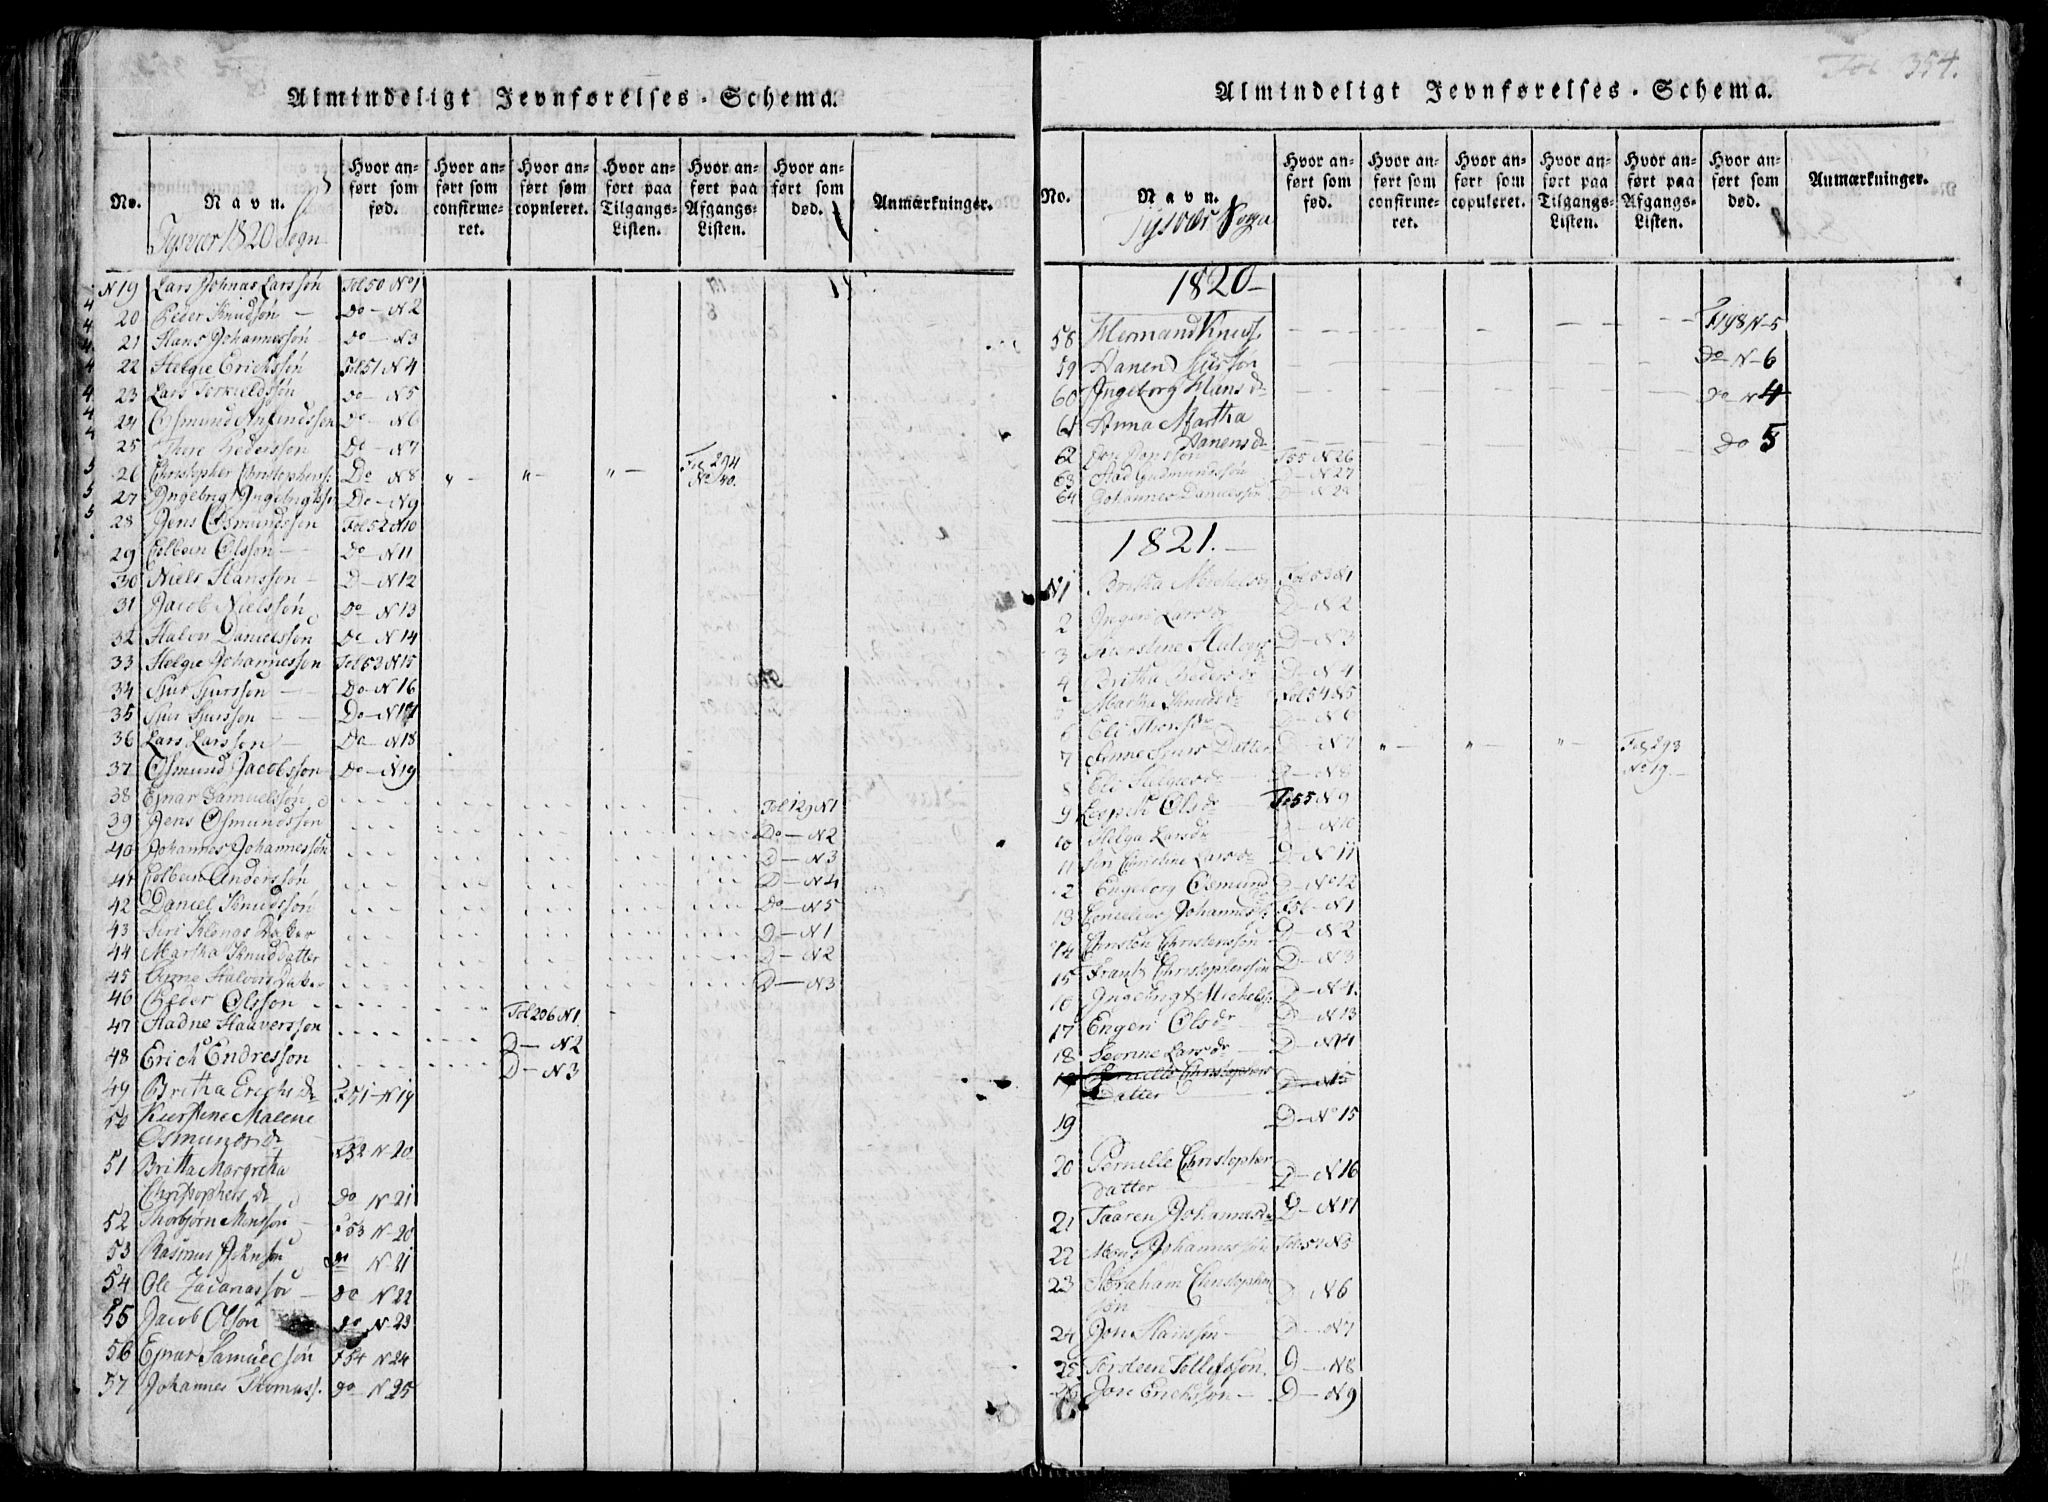 Almindeligt Jevnførelses-Schema.
No.
Navn.
Tysvær 1820 Sogn
Hvor anført som fød.
Hvor anført som confirmeret.
Hvor anført som copuleret.
Hvor anført paa Tilgangs-Listen.
Hvor anført paa Afgangs-Listen.
Hvor anført som død.
Anmærkninger.
N19 Lars Johnas Larssøn Fol 50 No1
20 Peder Knudsøn - Do - N2
21 Hans Johannessøn Do - N3
22 Helgie Erichssøn Fol 51 N4
23 Lars Torkildssøn Do - N5
24 Osmund Anfindssøn Do - N6
25 Thore Pederssøn Do - N7
26 Christopher Christophers: Do N8 " - " - " - Fol 294 No 40.
27 Ingebrigt Ingebrigtssøn Do - N9
28 Jens Osmundssøn Fol 52 N10
29 Colbein Olssøn - Do - N11
30 Niels Hanssøn - D - N12
31 Jacob Nielssøn Do - N13
32 Halvor Danielssøn Do - N14
33 Helgie Johannessøn Fol 53 N15
34 Siur Siurssøn - Do - N16
35 Siur Siurssøn - Do - N17
36 Lars Larssøn - Do - N18
37 Osmund Jacobssøn Do - N19
38 Ejnar Samuelssøn Fol 129 N1
39 Jens Osmundssøn Do - N2
40 Johannes Johannessøn D - N3
41 Colbein Anderssøn D - N4
42 Daniel Knudssøn Do - N5
43 Siri Klongs Datter D - N1
44 Martha Knuddatter D - N2
45 Anne Halvors Datter D - N3
46 Peder Olssøn - Fol 206 N1
47 Hadne Haaverssøn D - N2
48 Erich Endressøn D - N3
49 Britha Erichs Dr F 51 - N19
50 Kierstene Malene
Osmunds dr F52 N 20
51 Britta Margretha
Christophers dr do N 21
52 Thorbjørn Monssøn - F53 N-20
53 Rasmus Johnsøn do N 21
54 Ole Zacariassøn - do N 22
55 Jacob Olsøn do N-23
56 Ejnar Samuelsøn F54 N 24
57 Johannes Thomass. do N 25
Fol 354.
Almindeligt Jevnførelses-Schema.
No.
Navn.
Tysvær Sogn
Hvor anført som fød.
Hvor anført som confirmeret.
Hvor anført som copuleret.
Hvor anført paa Tilgangs-Listen.
Hvor anført paa Afgangs-Listen.
Hvor anført som død.
Anmærkninger.
1820 -
58 Hermand Knuds. F198 N-5
59 Aanen Siurssøn Do N-6
60 Ingeborg Hans dr Do N 4
61 Anna Martha
Aanens dr Do 5
62 Jon Jonssøn F55 N 26
63 Aad Gudmundssøn D - N 27
64 Johannes Danielssøn D - N 28
1821. -
N1 Britha Michelsdr Fol 53 N1
2 Ingeri Larsdr D - N2
3 Kierstine Halvors dr D - N3
4 Britha Peders dr D - N4
5 Martha Knuds dr Fol 54 N5
6 Eli Thors dr D - N6
7 Anne Siurs Datter D - N7 " - " - " - Fol 293 No 19. -
8 Eli Helgies dr D - N8
9 Lispeth Olsdr Fol 55 N9
10 Helga Larsdr D - N10
11 Christine Larsdr D - N11
12 Engeborg Osmunds D - No12
13 Cornelius Johannes s: F 56 - N1
14 Christen Christenssøn D - N2
15 Frants Christopherssøn D - N3
16 Ingebrigt Michels: D - N4.
17 Engeri Olsdr D - N13
18 Serine Larsdr - D - N14
19 Pernille Christophers
Datter D - N15
19 D - No 15
20 Pernille Christopher
datter D - N16
21 Taaren Johannesdr D - N17
22 Mons Johannessøn Fol 57 N5
23 Abraham Christopher
søn D N6
24 Jon Hanssøn - D - N7
25 Torsteen Tollefssøn. D - N8
26 Jone Erickssøn - D - N9